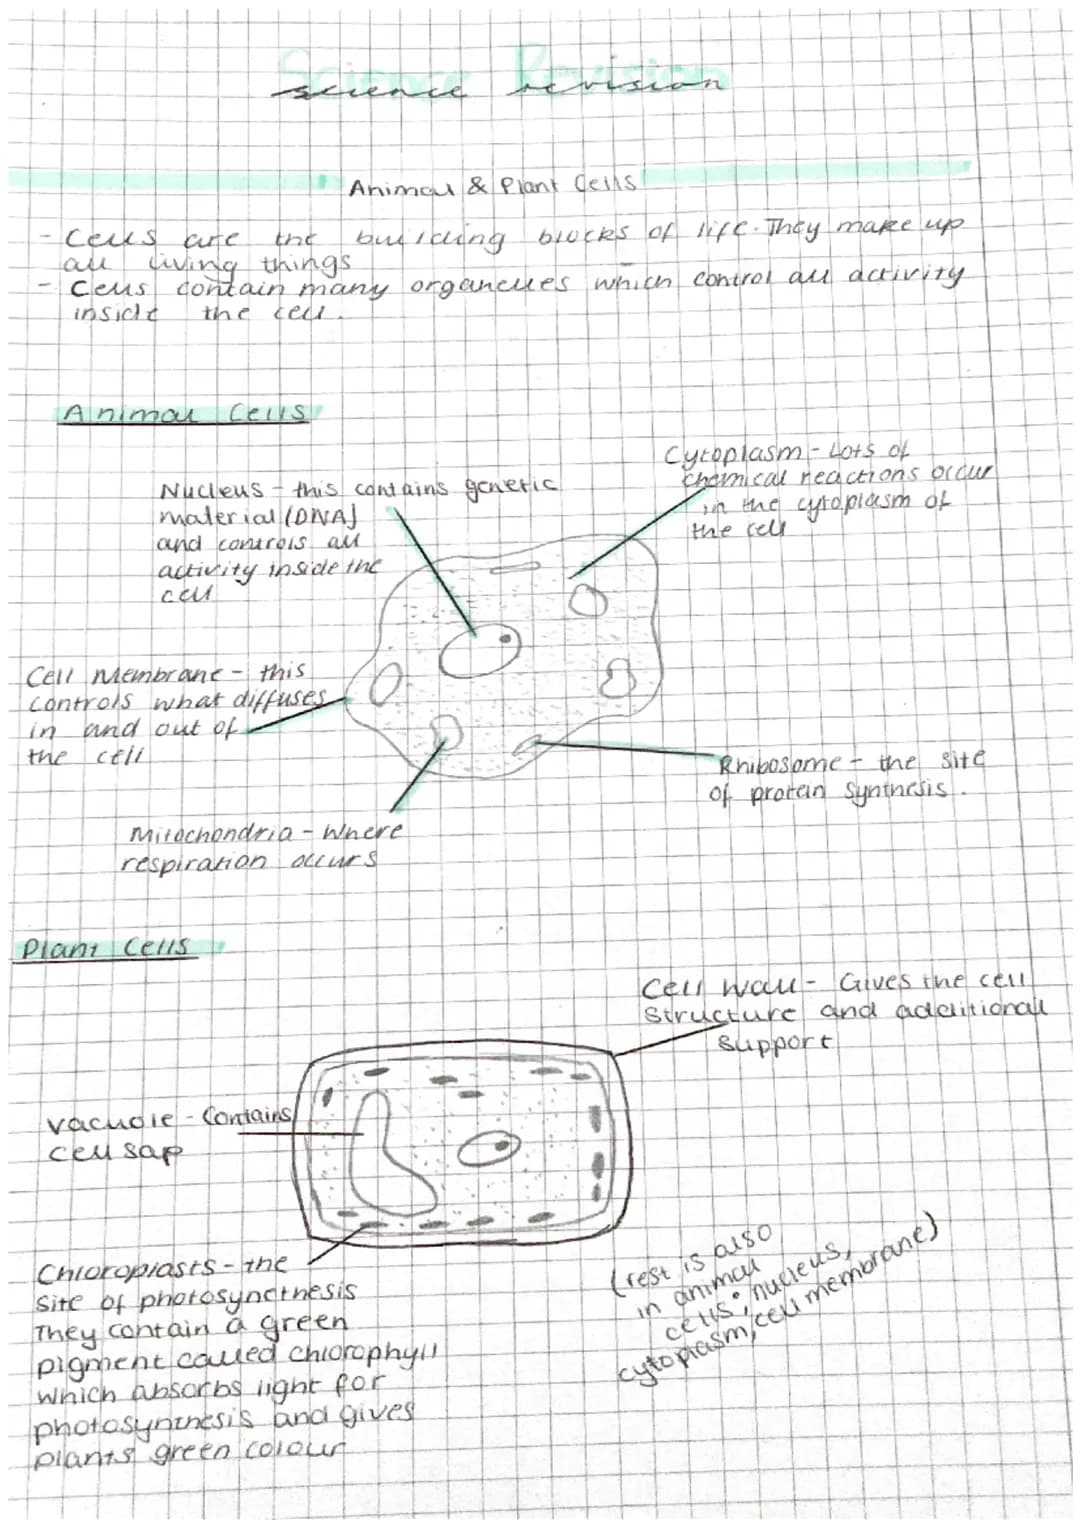 Science Revision
science revision
Animal & Plant Cells
- Cells are the building blocks of life. They make up
all living things
- Cells contain many organelles which control all activity
inside the cell.
Animal Cells
Cytoplasm - Lots of
chemical reactions occur
in the cytoplasm of
the cell
Nucleus - this contains genetic
material (DNA)
and controls all
activity inside the
cell
Cell Membrane - this
controls what diffuses
in and out of
the cell
Rhibosome - the site
of protein synthesis.
Mitochondria - Where
respiration occurs
Plant Cells
Cell wall - Gives the cell
structure and additional
support
vacuole - Contains
cell sap
Chloroplasts - the
site of photosyncthesis
They contain a green
pigment called chlorophyll
which absorbs light for
photosynthesis and gives
plants green colour
(rest is also
in animal
cells; nucleus,
cytoplasm, cell membrane)